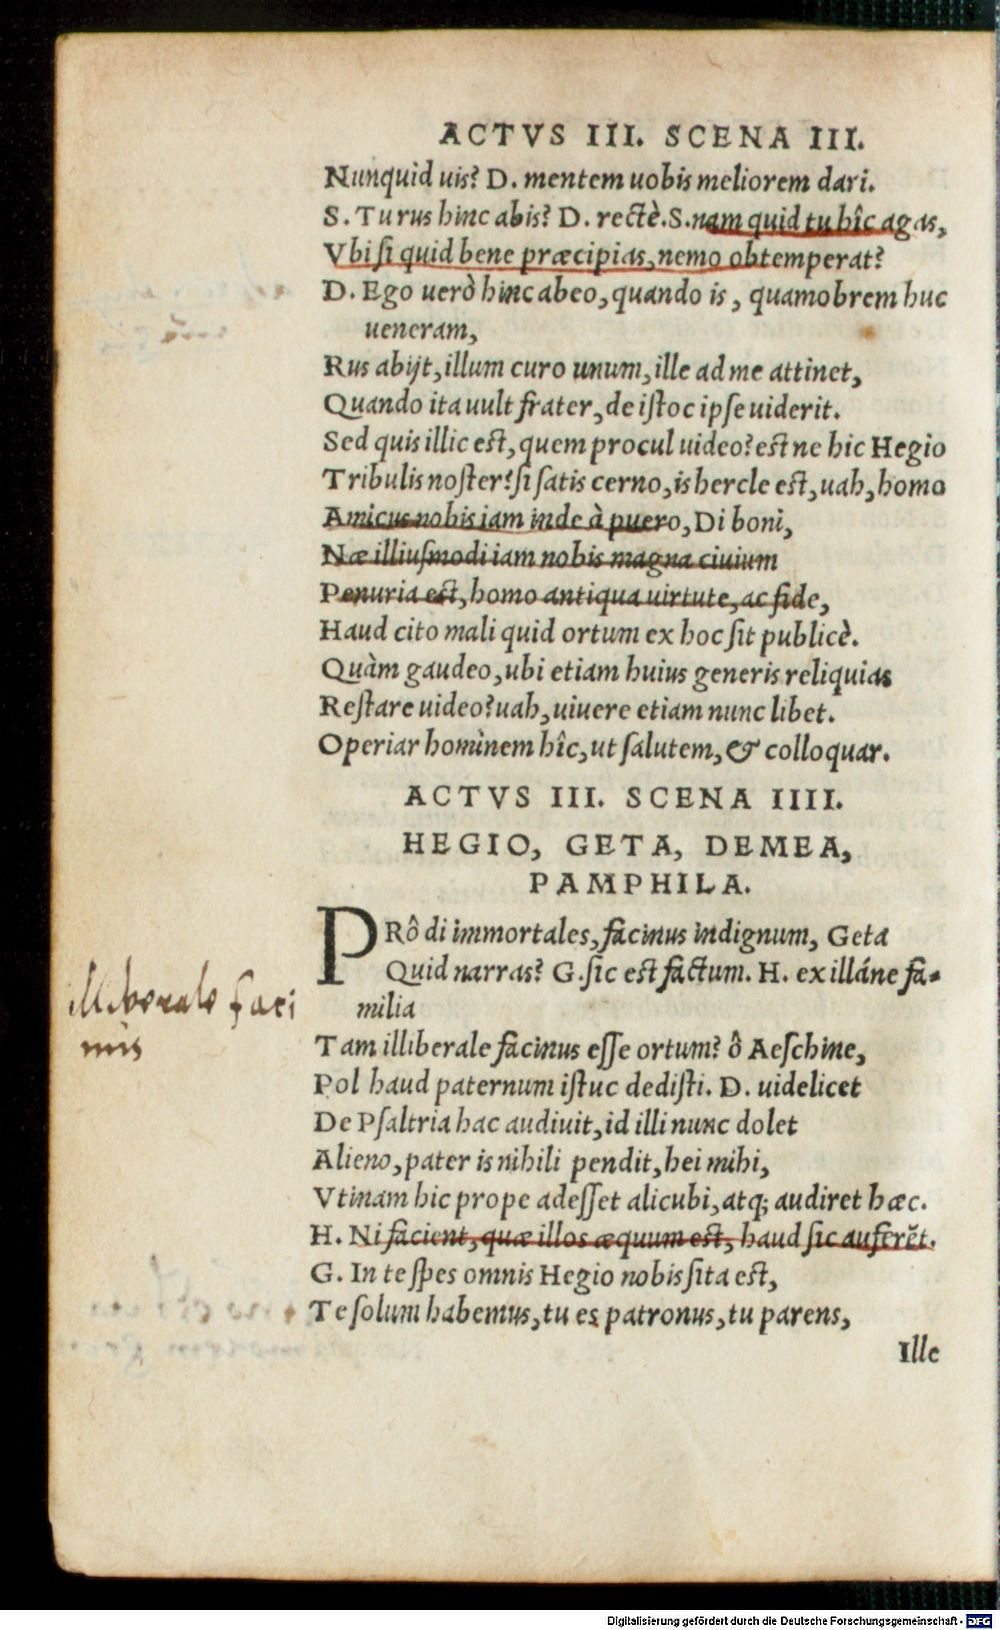 ACTVS III. SCENA III.
Nunquid uis? D. mentem uobis meliorem dari.
S. Tu rus hinc abis? D. rectè. S. nam quid tu hîc agas,
Vbi si quid bene præcipias, nemo obtemperat?
D. Ego uerò hinc abeo, quando is, quamobrem huc
ueneram,
Rus abijt, illum curo unum, ille ad me attinet,
Quando ita uult frater, de istoc ipse uiderit.
Sed quis illic est, quem procul uideo? est ne hic Hegio
Tribulis noster? si satis cerno, is hercle est, uah, homo
Amicus nobis iam inde à puero, Di boni,
Næ illiusmodi iam nobis magna ciuium
Penuria est, homo antiqua uirtute, ac fide,
Haud cito mali quid ortum ex hoc sit publicè.
Quàm gaudeo, ubi etiam huius generis reliquias
Restare uideo? uah, uiuere etiam nunc libet.
Operiar hominem hîc, ut salutem, & colloquar.
ACTVS III. SCENA IIII.
HEGIO, GETA, DEMEA,
PAMPHILA.
PRô di immortales, facinus indignum, Geta
Quid narras? G. sic est factum. H. ex illáne fa-
milia
illiberale faci
nus
Tam illiberale facinus esse ortum? ô Aeschine,
Pol haud paternum istuc dedisti. D. uidelicet
De Psaltria hac audiuit, id illi nunc dolet
Alieno, pater is nihili pendit, hei mihi,
Vtinam hic prope adesset alicubi, atq; audiret hæc.
H. Ni facient, quæ illos æquum est, haud sic auferēt.
G. In te spes omnis Hegio nobis sita est,
Te solum habemus, tu es patronus, tu parens,
Ille
Digitalisierung gefördert durch die Deutsche Forschungsgemeinschaft - DFG